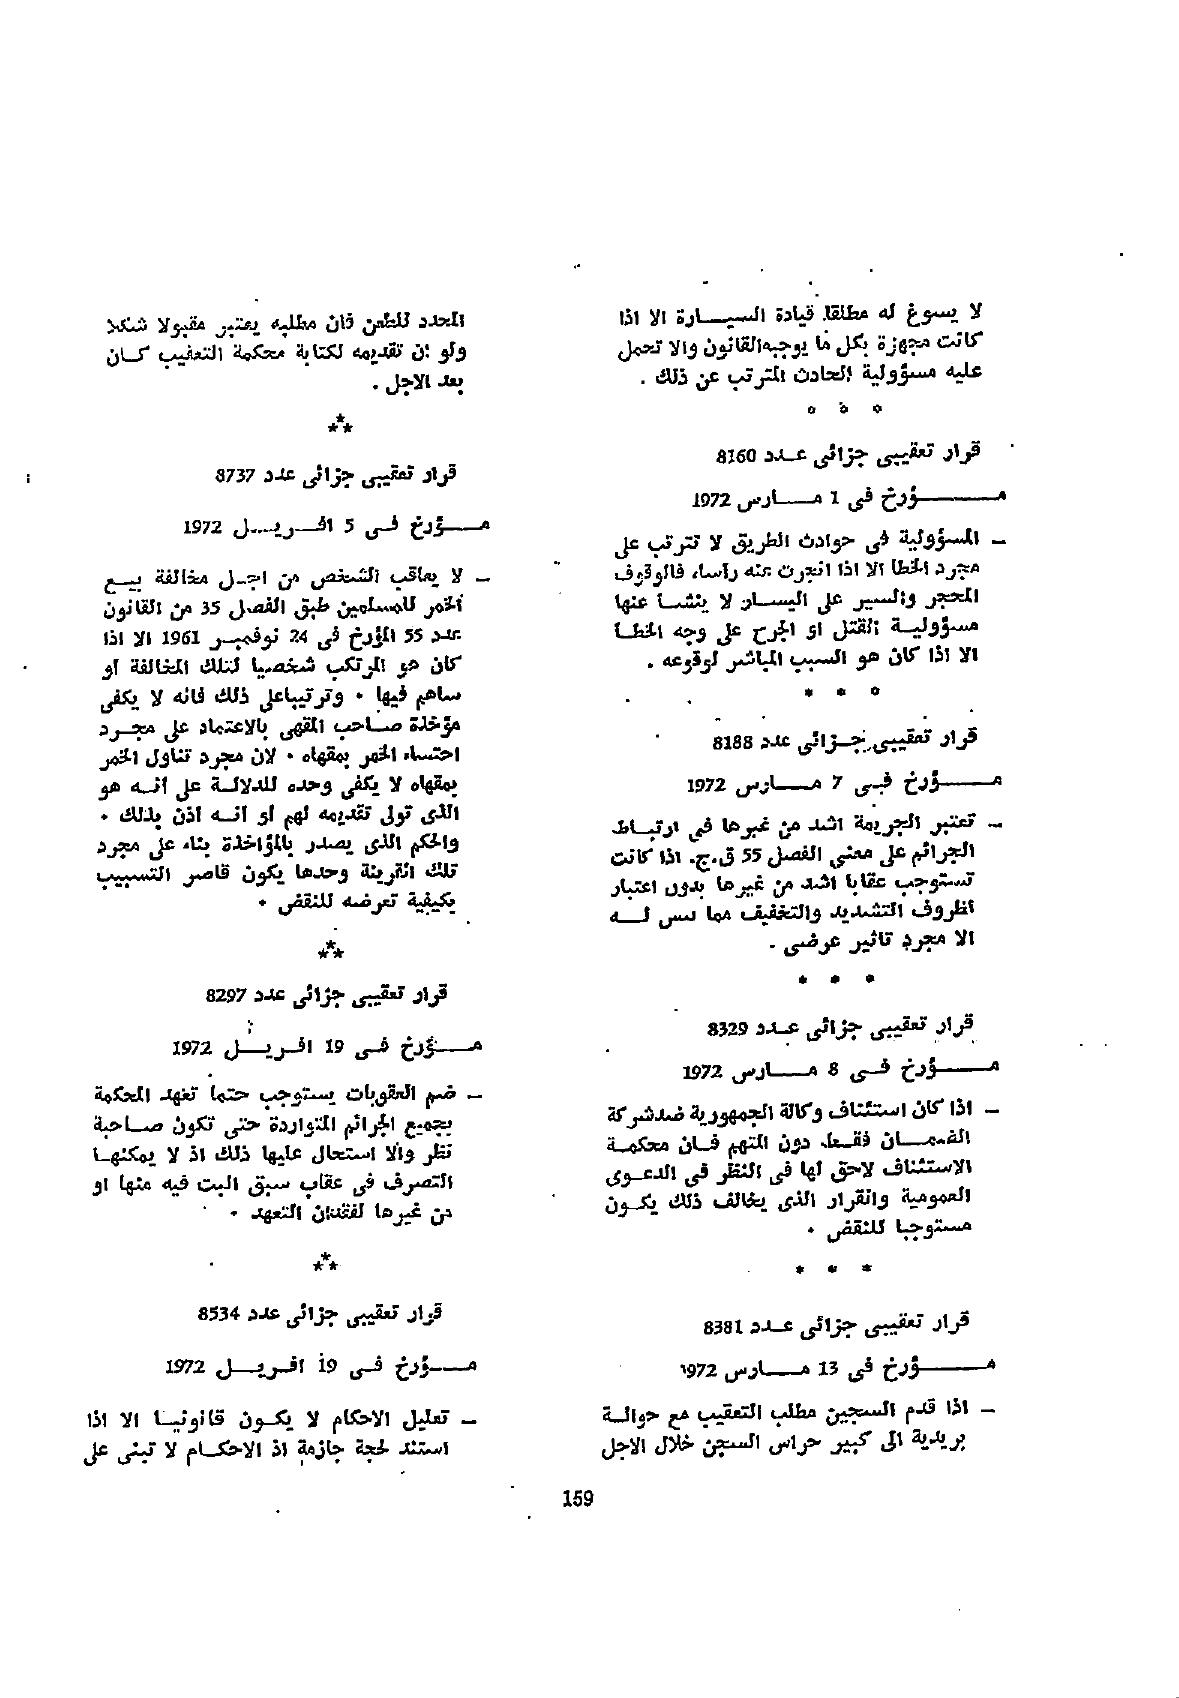 لا يسوغ له مطلقا قيادة السيارة الا اذا
كانت مجهزة بكل ما يوجبه القانون والا تحمل
عليه مسؤولية الحادث المترتب عن ذلك .
* * *
قرار تعقيبى جزائى عدد 8160
مؤرخ فى 1 مارس 1972
— المسؤولية فى حوادث الطريق لا تترتب على
مجرد الخطا الا اذا انجرت عنه رأسا، فالوقوف
المحجر والسير على اليسار لا ينشا عنها
مسؤولية القتل او الجرح على وجه الخطا
الا اذا كان هو السبب المباشر لوقوعه .
* * *
قرار تعقيبى جزائى عدد 8188
مؤرخ فى 7 مارس 1972
— تعتبر الجريمة اشد من غيرها فى ارتباط
الجرائم على معنى الفصل 55 ق.ج. اذا كانت
تستوجب عقابا اشد من غيرها بدون اعتبار
لظروف التشديد والتخفيف مما ليس له
الا مجرد تاثير عرضى .
* * *
قرار تعقيبى جزائى عدد 8329
مؤرخ فى 8 مارس 1972
— اذا كان استئناف وكالة الجمهورية ضد شركة
الضمان فقط دون المتهم فان محكمة
الاستئناف لاحق لها فى النظر فى الدعوى
العمومية والقرار الذى يخالف ذلك يكون
مستوجبا للنقض .
* * *
قرار تعقيبى جزائى عدد 8381
مؤرخ فى 13 مارس 1972
— اذا قدم السجين مطلب التعقيب مع حوالة
بريدية الى كبير حراس السجن خلال الاجل
المحدد للطعن فان مطلبه يعتبر مقبولا شكلا
ولو أن تقديمه لكتابة محكمة التعقيب كان
بعد الاجل .
***
قرار تعقيبى جزائى عدد 8737
مؤرخ فى 5 افريل 1972
— لا يعاقب الشخص من اجل مخالفة بيع
الخمر للمسلمين طبق الفصل 35 من القانون
عدد 55 المؤرخ فى 24 نوفمبر 1961 الا اذا
كان هو المرتكب شخصيا لتلك المخالفة أو
ساهم فيها . وترتيبا على ذلك فانه لا يكفى
مؤخذة صاحب المقهى بالاعتماد على مجرد
احتساء الخمر بمقهاه . لان مجرد تناول الخمر
بمقهاه لا يكفى وحده للدلالة على أنه هو
الذى تولى تقديمه لهم او انه اذن بذلك .
والحكم الذى يصدر بالمؤاخذة بناء على مجرد
تلك القرينة وحدها يكون قاصر التسبيب
بكيفية تعرضه للنقض .
***
قرار تعقيبى جزائى عدد 8297
مؤرخ فى 19 افريل 1972
— ضم العقوبات يستوجب حتما تعهد المحكمة
بجميع الجرائم المتواردة حتى تكون صاحبة
نظر والا استحال عليها ذلك اذ لا يمكنها
التصرف فى عقاب سبق البت فيه منها او
من غيرها لفقدان التعهد .
***
قرار تعقيبى جزائى عدد 8534
مؤرخ فى 19 افريل 1972
— تعليل الاحكام لا يكون قانونيا الا اذا
استند لحجة جازمة اذ الاحكام لا تبنى على
159